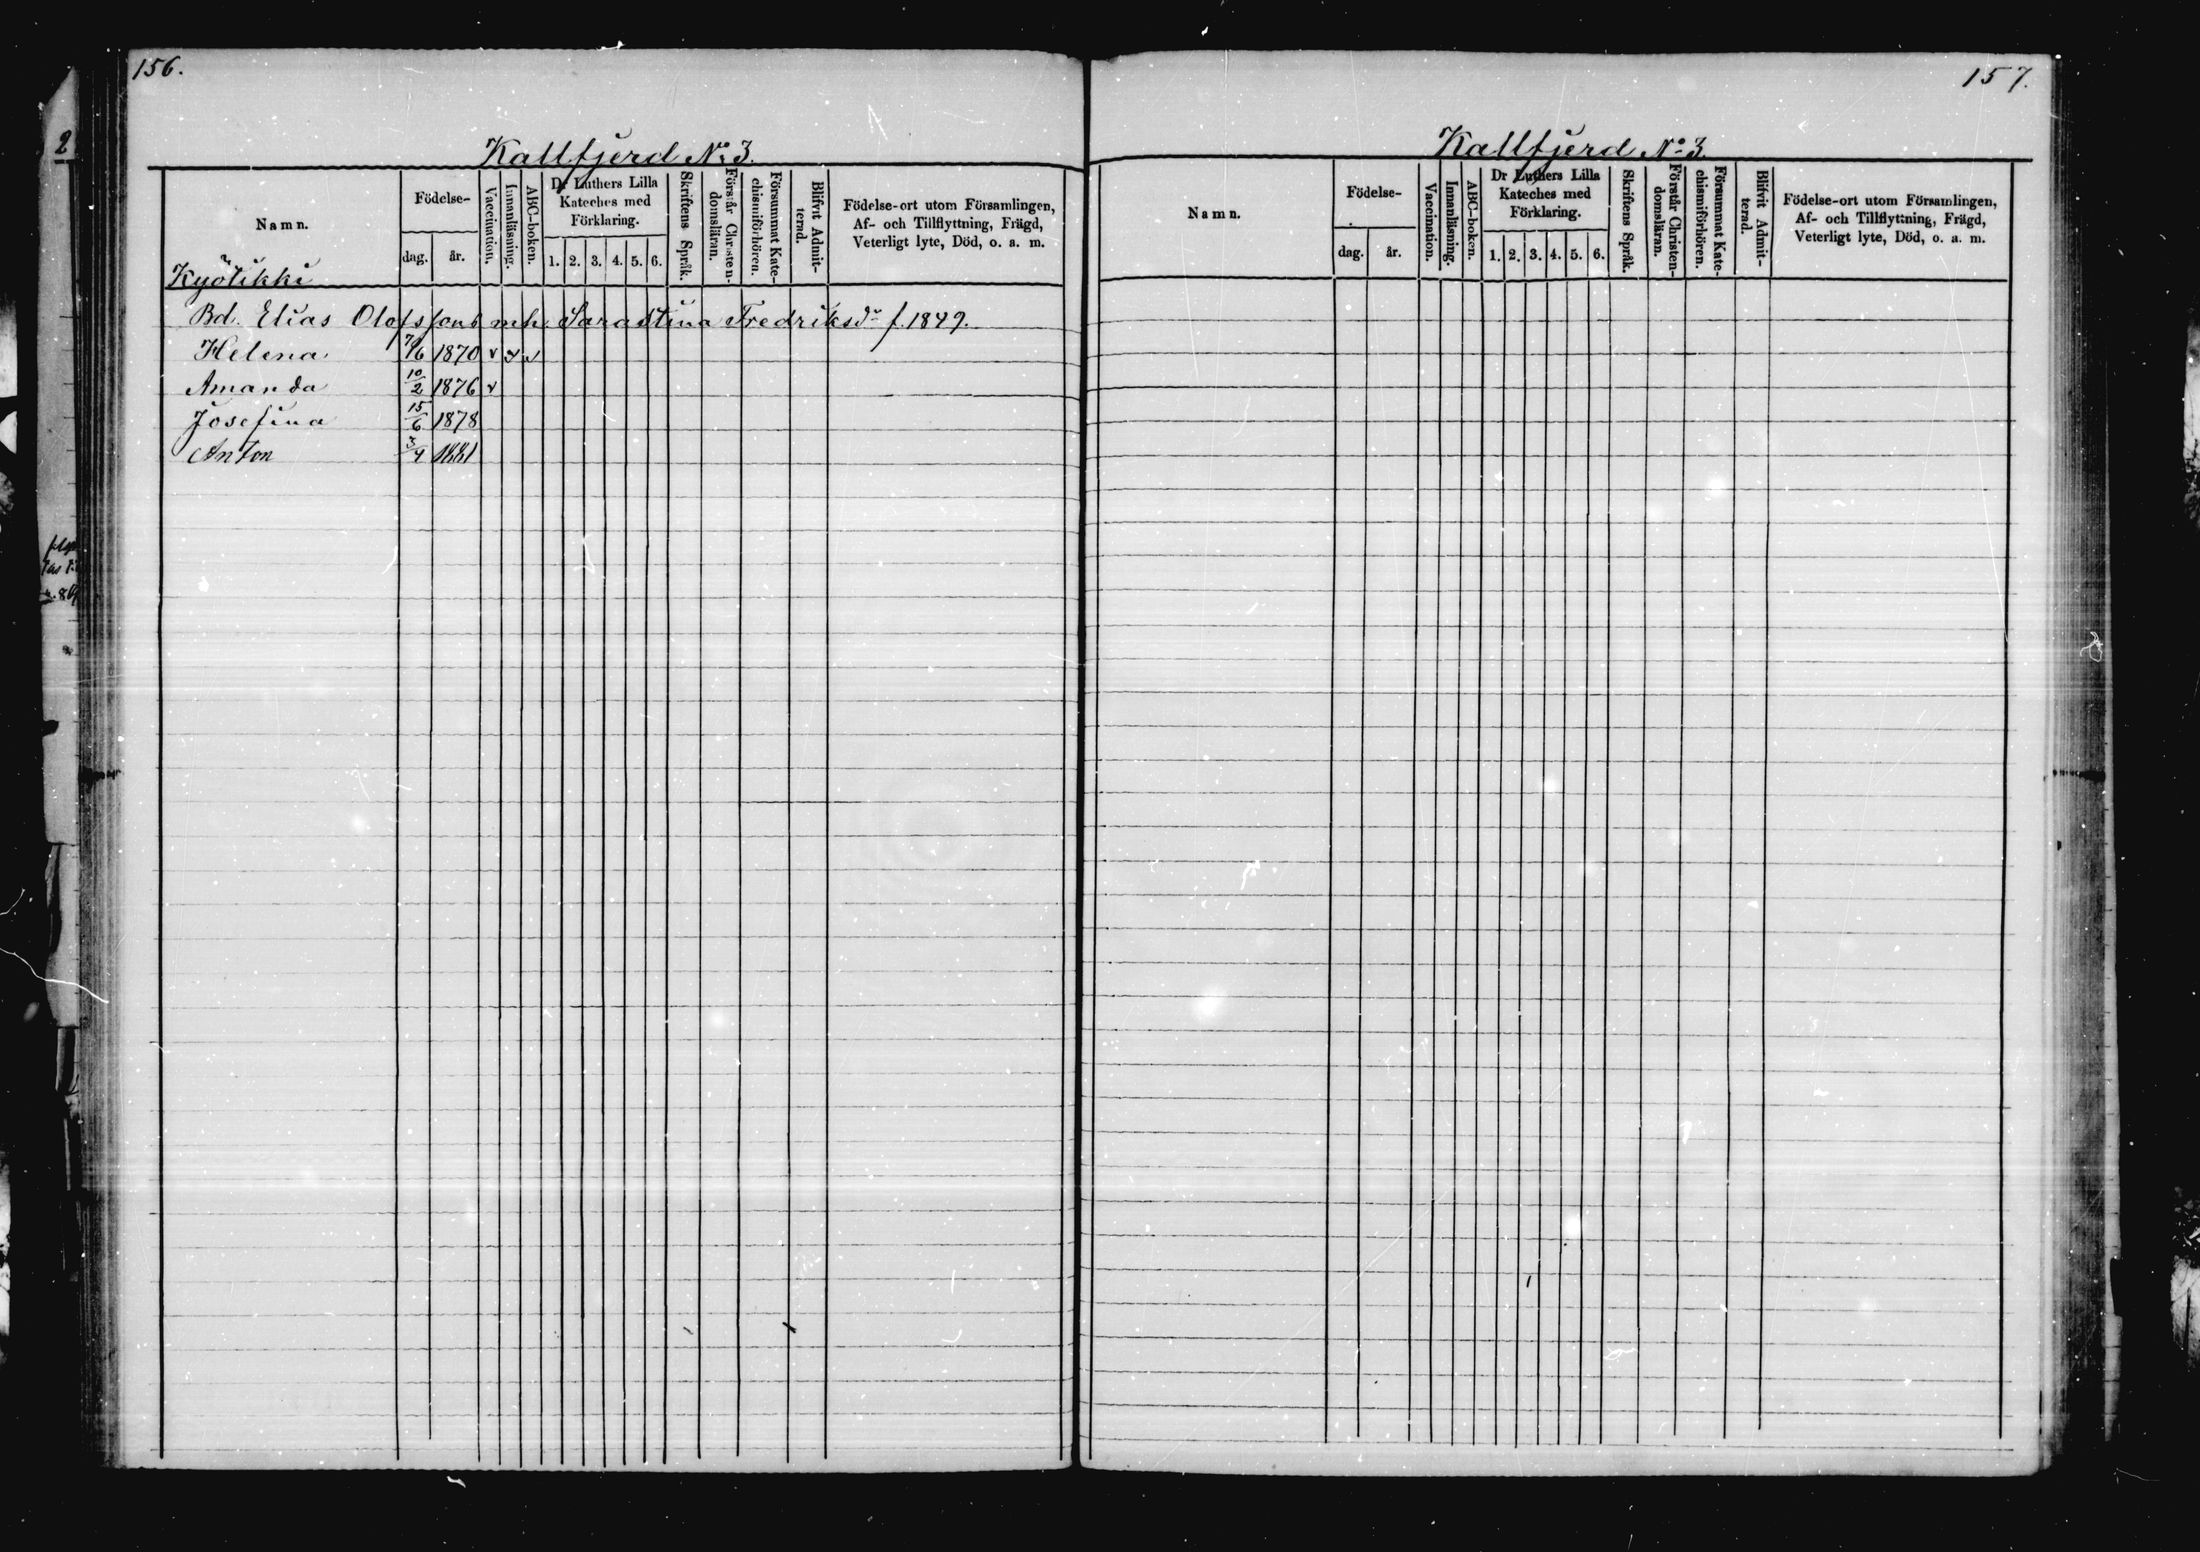 156.
Kallfjerd No 3.
Namn.
Födelse-
dag.
år.
Vaccination.
Innanläsning.
ABC-boken.
Dr Luthers Lilla
Kateches med
Förklaring.
1. 2. 3. 4. 5. 6.
Skriftens Språk.
Förstår Christen-
domsläran.
Försummat Kate-
chismiförhören.
Blifvit Admit-
terad.
Födelse-ort utom Församlingen,
Af- och Tillflyttning, Frägd,
Veterligt lyte, Död, o. a. m.
Bd. Elias Olofssons mh. Sarastina Fredriksdr f. 1849.
Helena 7/6 1870 v v v
Amanda 10/2 1876 v
Josefina 15/6 1878
Anton 3/4 1881
157.
Kallfjerd No 3.
Namn.
Födelse-
dag.
år.
Vaccination.
Innanläsning.
ABC-boken.
Dr Luthers Lilla
Kateches med
Förklaring.
1. 2. 3. 4. 5. 6.
Skriftens Språk.
Förstår Christen-
domsläran.
Försummat Kate-
chismiförhören.
Blifvit Admit-
terad.
Födelse-ort utom Församlingen,
Af- och Tillflyttning, Frägd,
Veterligt lyte, Död, o. a. m.